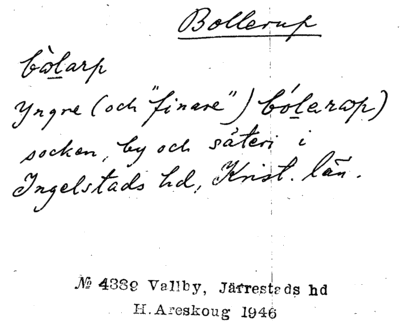 Bollerup
bòlarp
Yngre (och "finare") bólarɷp)
socken, by och säteri i
Ingelstads hd, Krist. län.
№ 4389 Vallby, Järrestads hd
H. Areskoug 1946